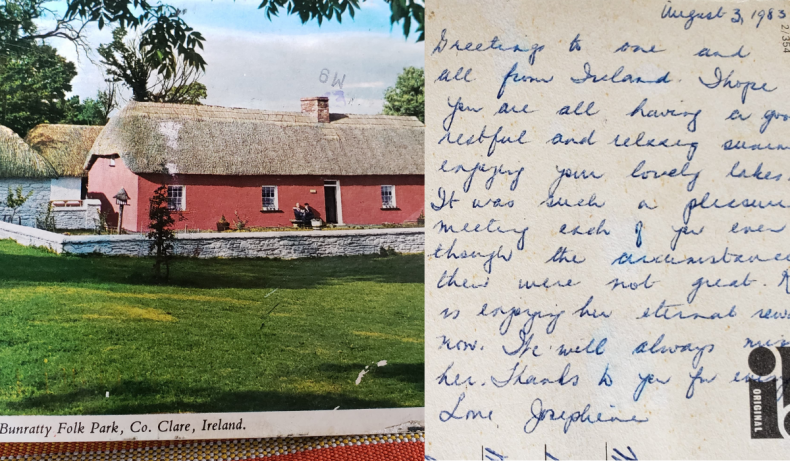 Bunratty Folk Park, Co. Clare, Ireland.
August 3, 1983
2/354
Greetings to one and
all from Ireland. I hope
you are all having a goo
restful and relaxing summ
enjoying your lovely lakes.
It was such a pleasure
meeting each of you even
though the circumstance
then were not great.
is enjoying her eternal rew
now. We will always miss
her. Thanks to you for every
Love Josephine
ORIGINAL